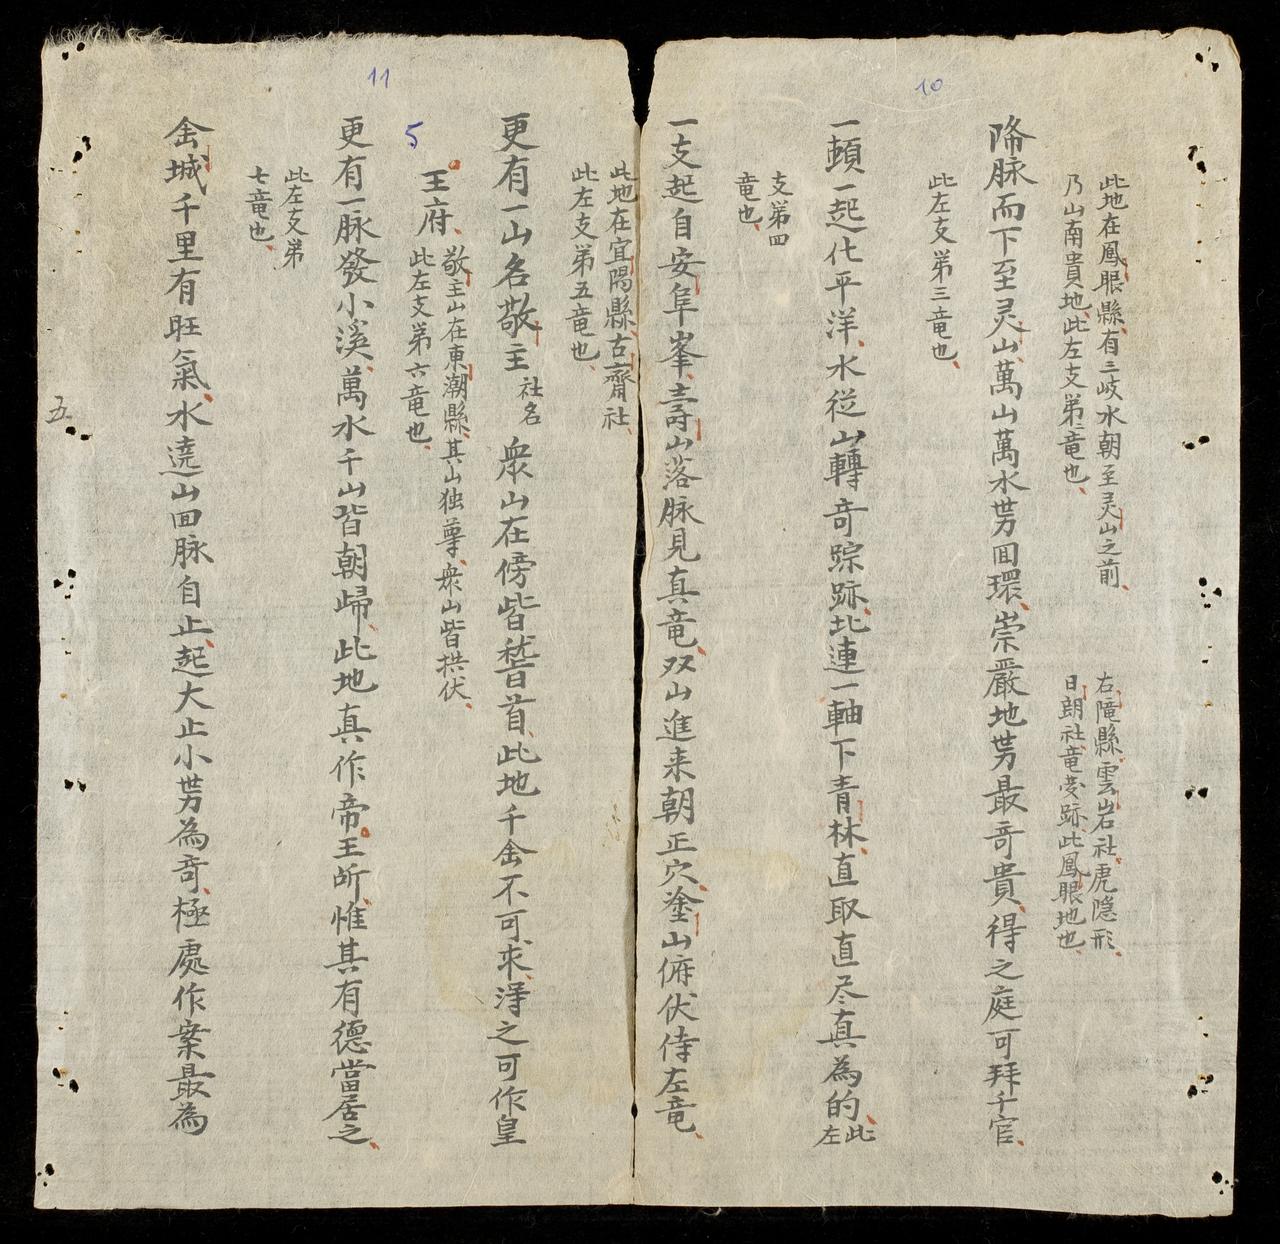 10
此地在鳳眼縣有三岐水朝至灵山之前
乃山南貴地此左支第二竜也
右隴縣雲岩社虎隐形
日朗社竜変跡此鳳眼地也
降脉而下至灵山萬山萬水势囬環崇嚴地势最奇貴得之庭可拜千官
此左支第三竜也
一頓一起化平洋水従山轉奇踪跡北連一軸下青林直取直尽真為的此左
支第四
竜也
一支起自安阜峯壽山落脉見真竜双山進来朝正穴塗山俯伏侍左竜
此地在宜陽縣古齋社
此左支第五竜也
更有一山名敬主社名衆山在傍皆稽首此地千金不可求淂之可作皇
王府敬主山在東潮縣其山独尊衆山皆拱伏
此左支第六竜也
11
5
更有一脉發小溪萬水千山皆朝歸此地真作帝王所惟其有德當居之
此左支第
七竜也
金城千里有旺氣水遶山囬脉自止起大止小势為奇極處作案最為
五